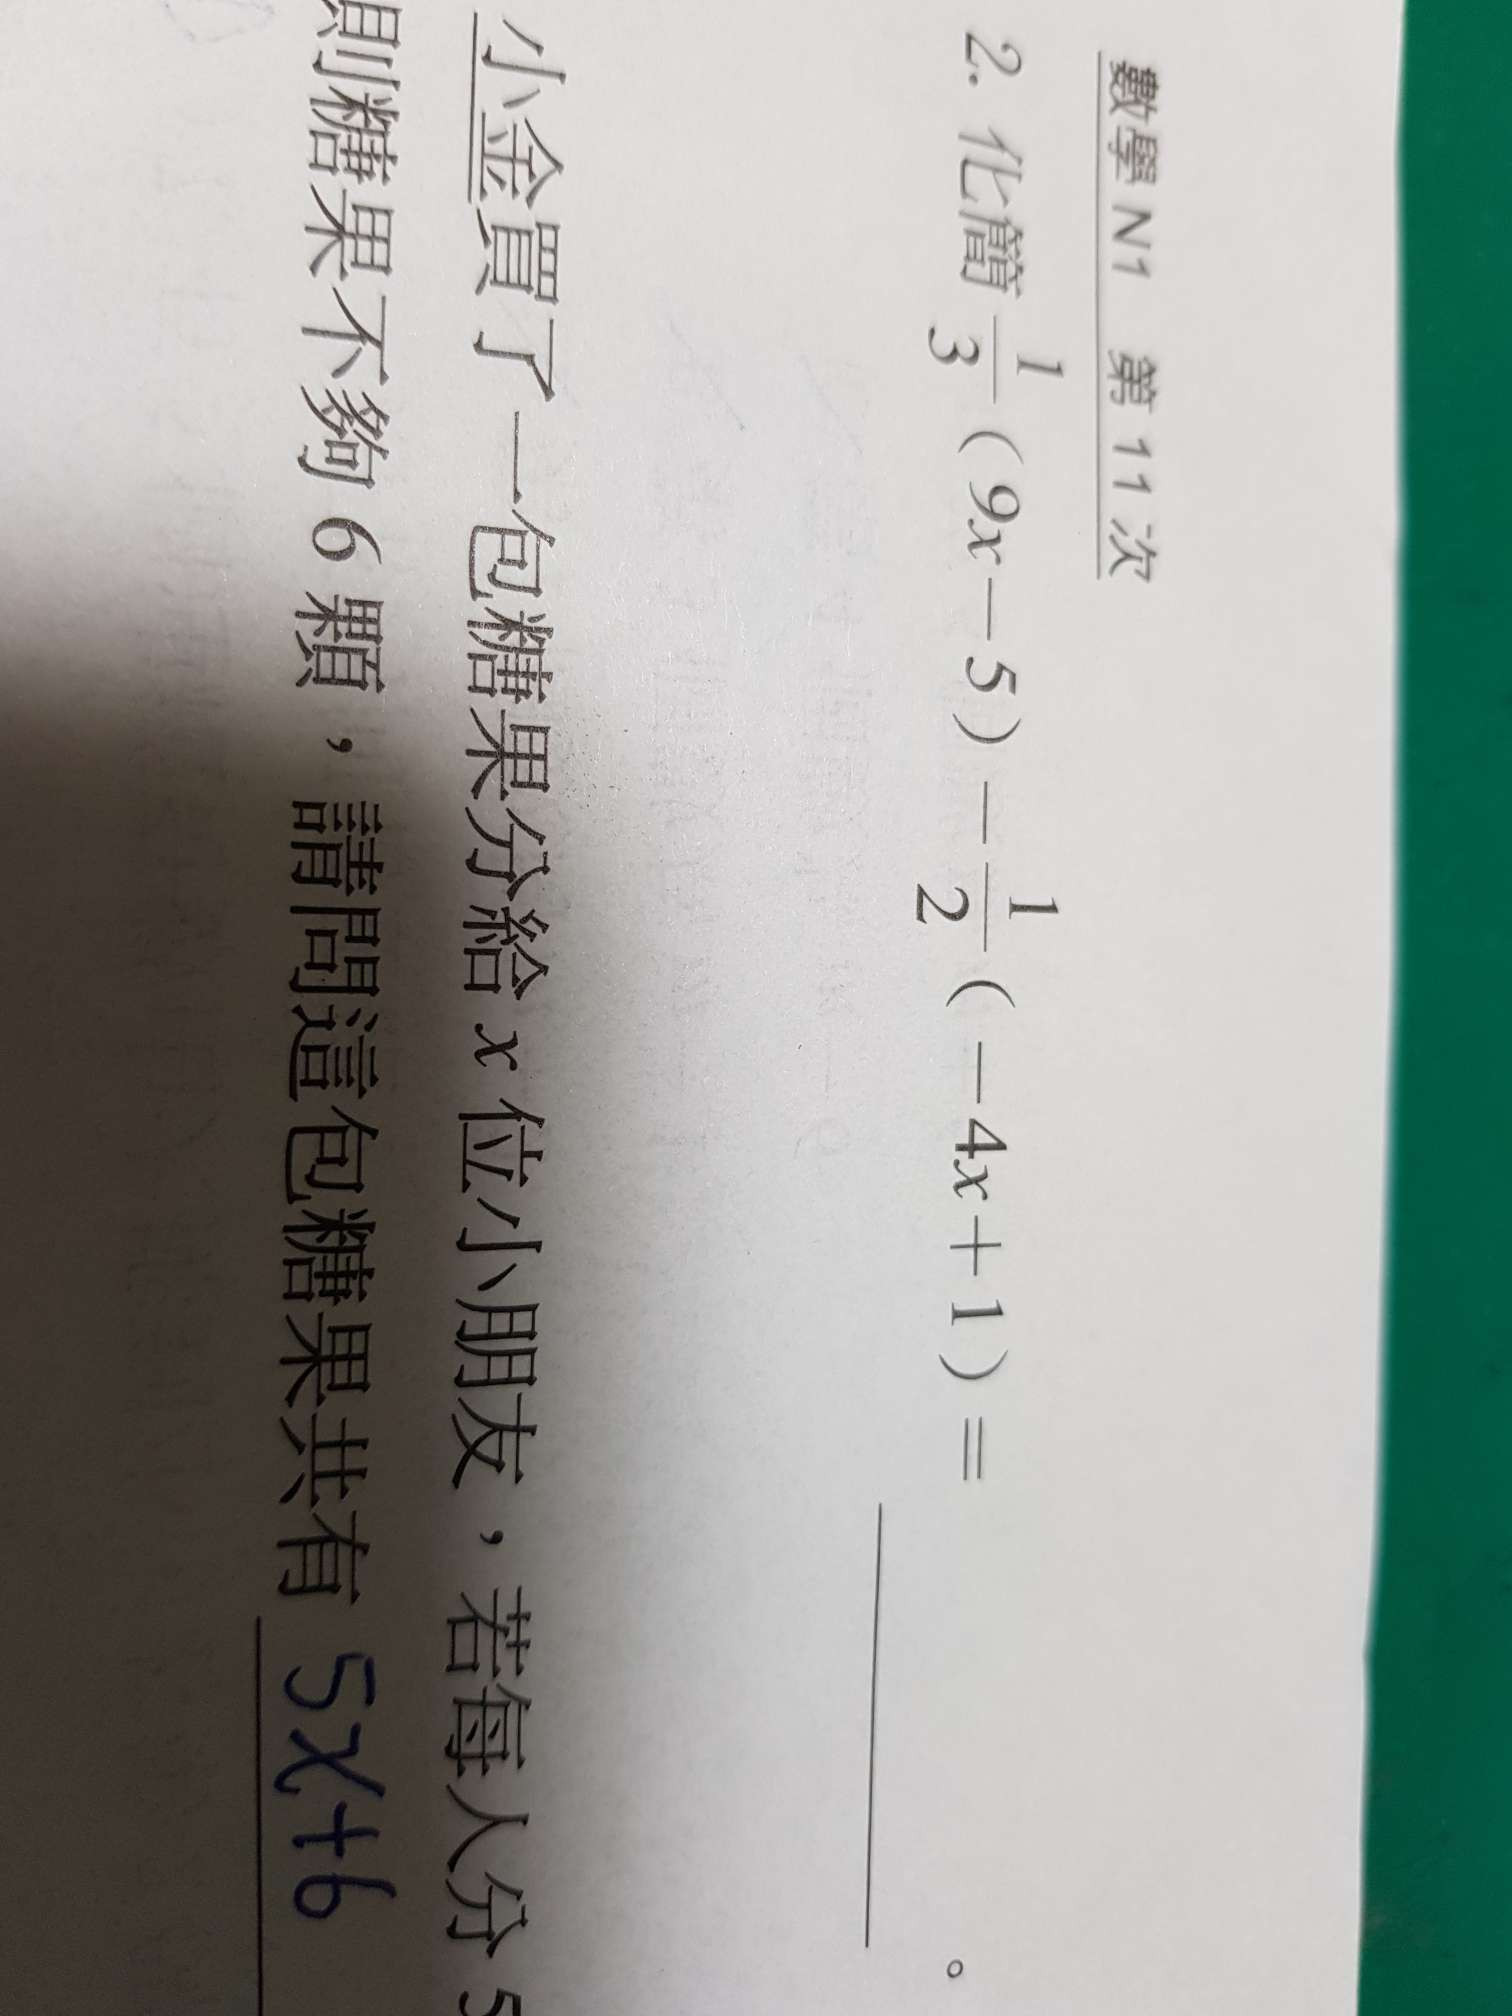 數學 N1 第 11 次
2. 化簡 1/3 (9x－5)－1/2 (－4x＋1)＝ ______ 。
小金買了一包糖果分給 x 位小朋友，若每人分 5
則糖果不夠 6 顆，請問這包糖果共有 5x+6